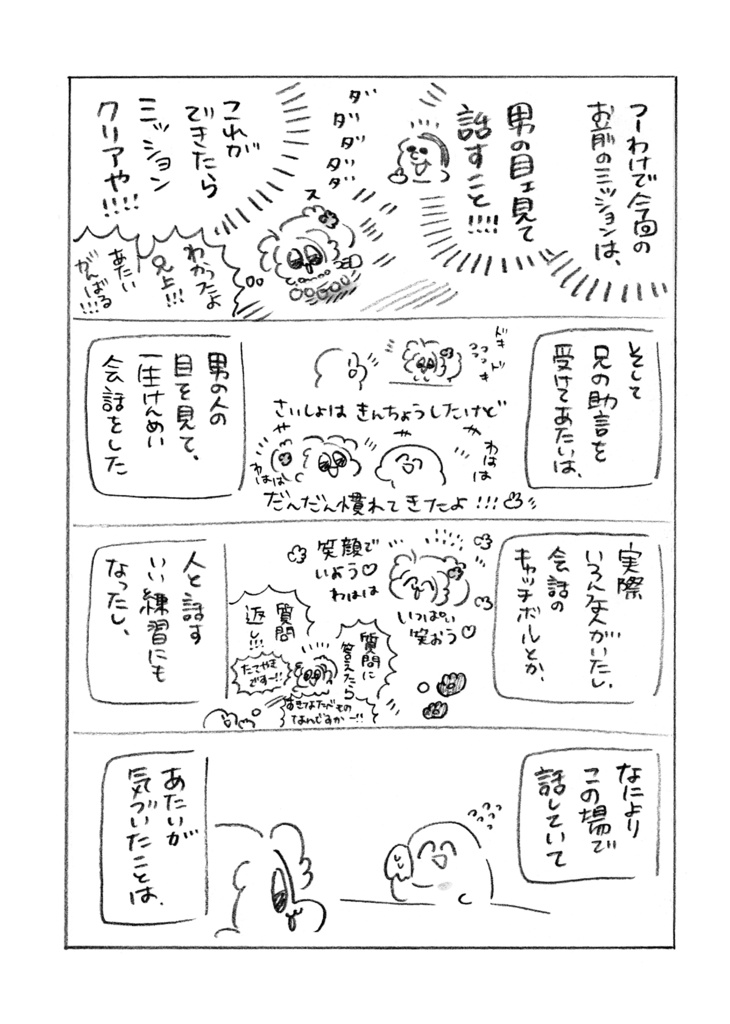 つーわけで今回の
お前のミッションは、
男の目ェ見て
話すこと!!!!
ダ
ダ
ダ
ダ
ダ
これが
できたら
ミッション
クリアや!!!!
ス
わかったよ
兄上!!!
あたい
がんばる
!!!
そして
兄の助言を
受けてあたいは、
ドキ
ドキ
さいしょは きんちょうしたけど
わはは
わはは
だんだん慣れてきたよ!!!
男の人の
目を見て、
一生けんめい
会話をした
実際
いろんな人がいたし、
会話の
キャッチボルとか、
笑顔で
いよう♡
わはは
いっぱい
笑おう♡
質問に
答えたら
質問
返し!!!
たてやき
ですー!!
すきなたべもの
なんですかー!!
人と話す
いい練習にも
なったし、
なにより
この場で
話していて
あたいが
気づいたことは、